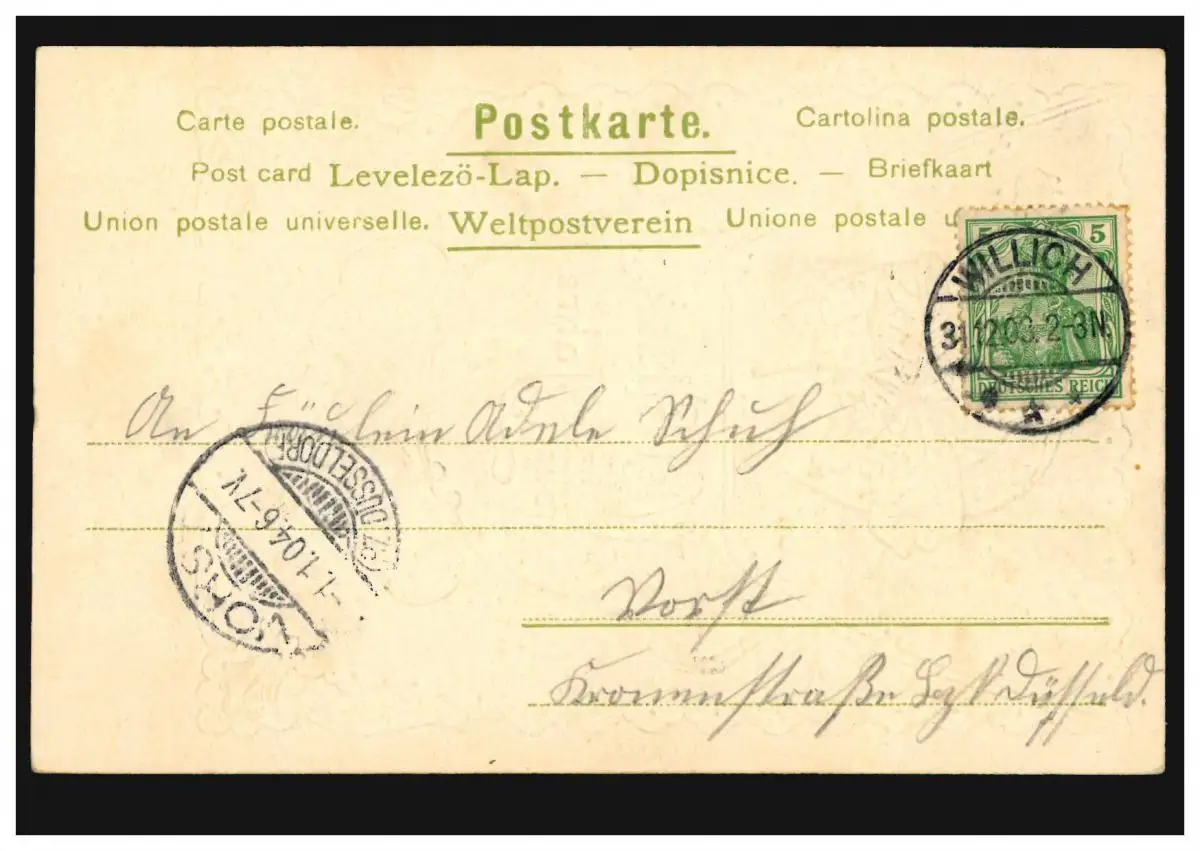 Carte postale. Postkarte. Cartolina postale.
Post card Levelezö-Lap. — Dopisnice. — Briefkaart
Union postale universelle. Weltpostverein Unione postale u
5 5
WILLICH
31.12.03. 2-3N.
DEUTSCHES REICH
An Fräulein Adele Schuh
(BZ. DÜSSELDORF)
1.1.04.6-7V.
VORST
Vorst
Kronenstraße Bz Düsseld.